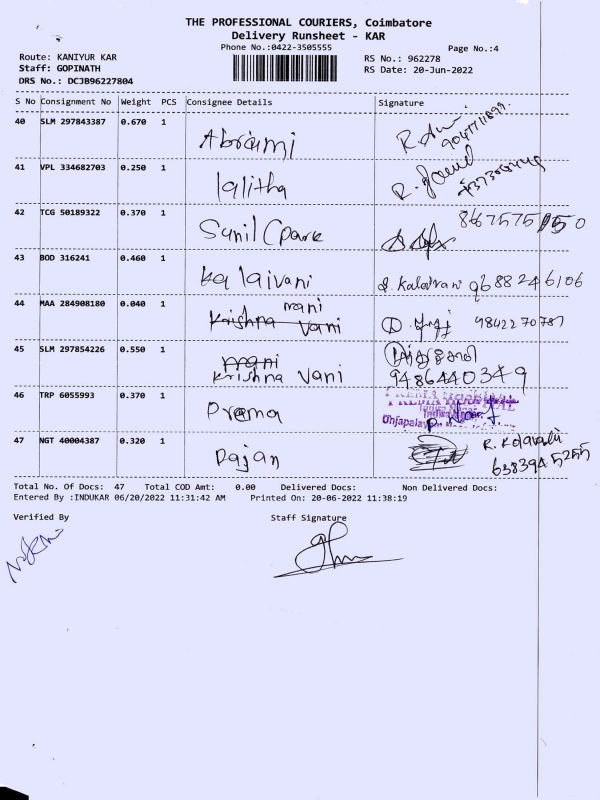 THE PROFESSIONAL COURIERS, Coimbatore
Delivery Runsheet - KAR
Phone No.:0422-3505555
Page No.:4
Route: KANIYUR KAR
RS No.: 962278
Staff: GOPINATH
RS Date: 20-Jun-2022
DRS No.: DCJB96227804
S No Consignment No Weight PCS Consignee Details Signature
40 SLM 297843387 0.670 1 Abirami
41 VPL 334682703 0.250 1 lalitha
42 TCG 50189322 0.370 1 Sunil Cpark
43 BOD 316241 0.460 1 kalaivani S. Kalaivani 9688246106
44 MAA 284908180 0.040 1 Krishna vani mani 9842270787
45 SLM 297854226 0.550 1 mani
Krishna vani 9486440349
46 TRP 6055993 0.370 1 Prema
47 NGT 40004387 0.320 1 Rajan
6383945255
Total No. Of Docs: 47 Total COD Amt: 0.00 Delivered Docs: Non Delivered Docs:
Entered By :INDUKAR 06/20/2022 11:31:42 AM Printed On: 20-06-2022 11:38:19
Verified By Staff Signature